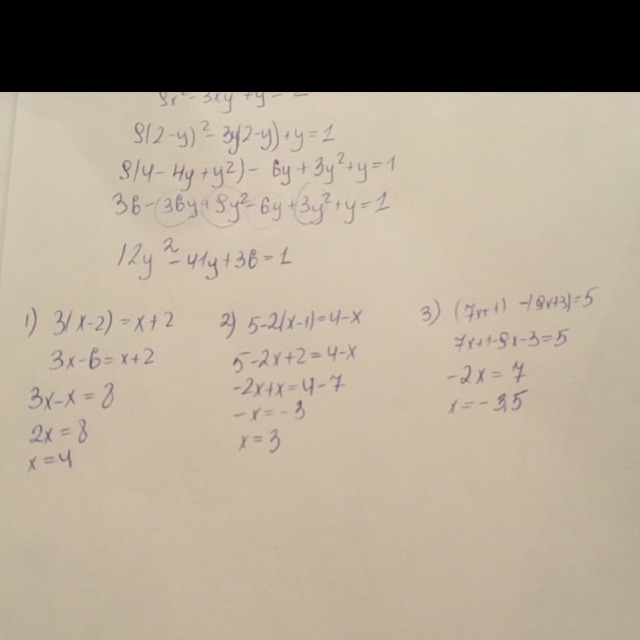 9x² - 3xy + y = 1
9(2-y)² - 3y(2-y) + y = 1
9(4-4y+y²) - 6y + 3y² + y = 1
36 - 36y + 9y² - 6y + 3y² + y = 1
12y² - 41y + 36 = 1
1) 3(x-2) = x+2
3x-6 = x+2
3x-x = 8
2x = 8
x = 4
2) 5-2(x-1) = 4-x
5-2x+2 = 4-x
-2x+x = 4-7
-x = -3
x = 3
3) (7x+1) - (9x+3) = 5
7x+1-9x-3 = 5
-2x = 7
x = -3,5